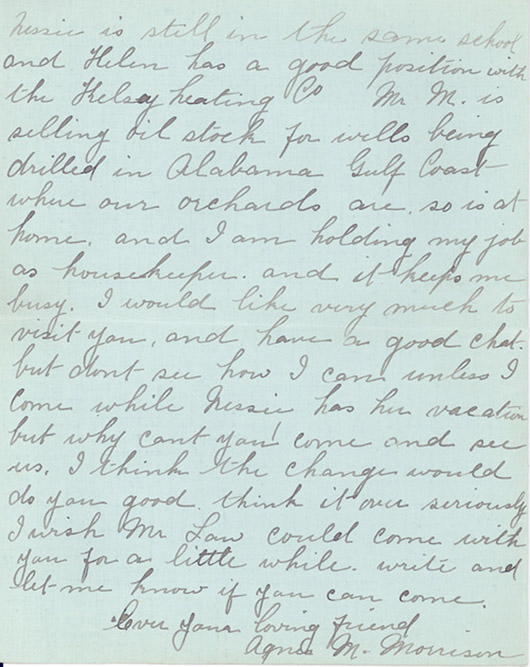 Nessie is still in the same school
and Helen has a good position with
the Kelsey heating Co Mr M. is
selling oil stock for wells being
drilled in Alabama Gulf Coast
where our orchards are, so is at
home. and I am holding my job
as housekeeper. and it keeps me
busy. I would like very much to
visit you, and have a good chat.
but dont see how I can unless I
come while Nessie has her vacation
but why cant you! come and see
us. I think the change would
do you good. think it over seriously
I wish Mr Law could come with
you for a little while. write and
let me know if you can come.
Ever your loving friend
Agnes M. Morrison